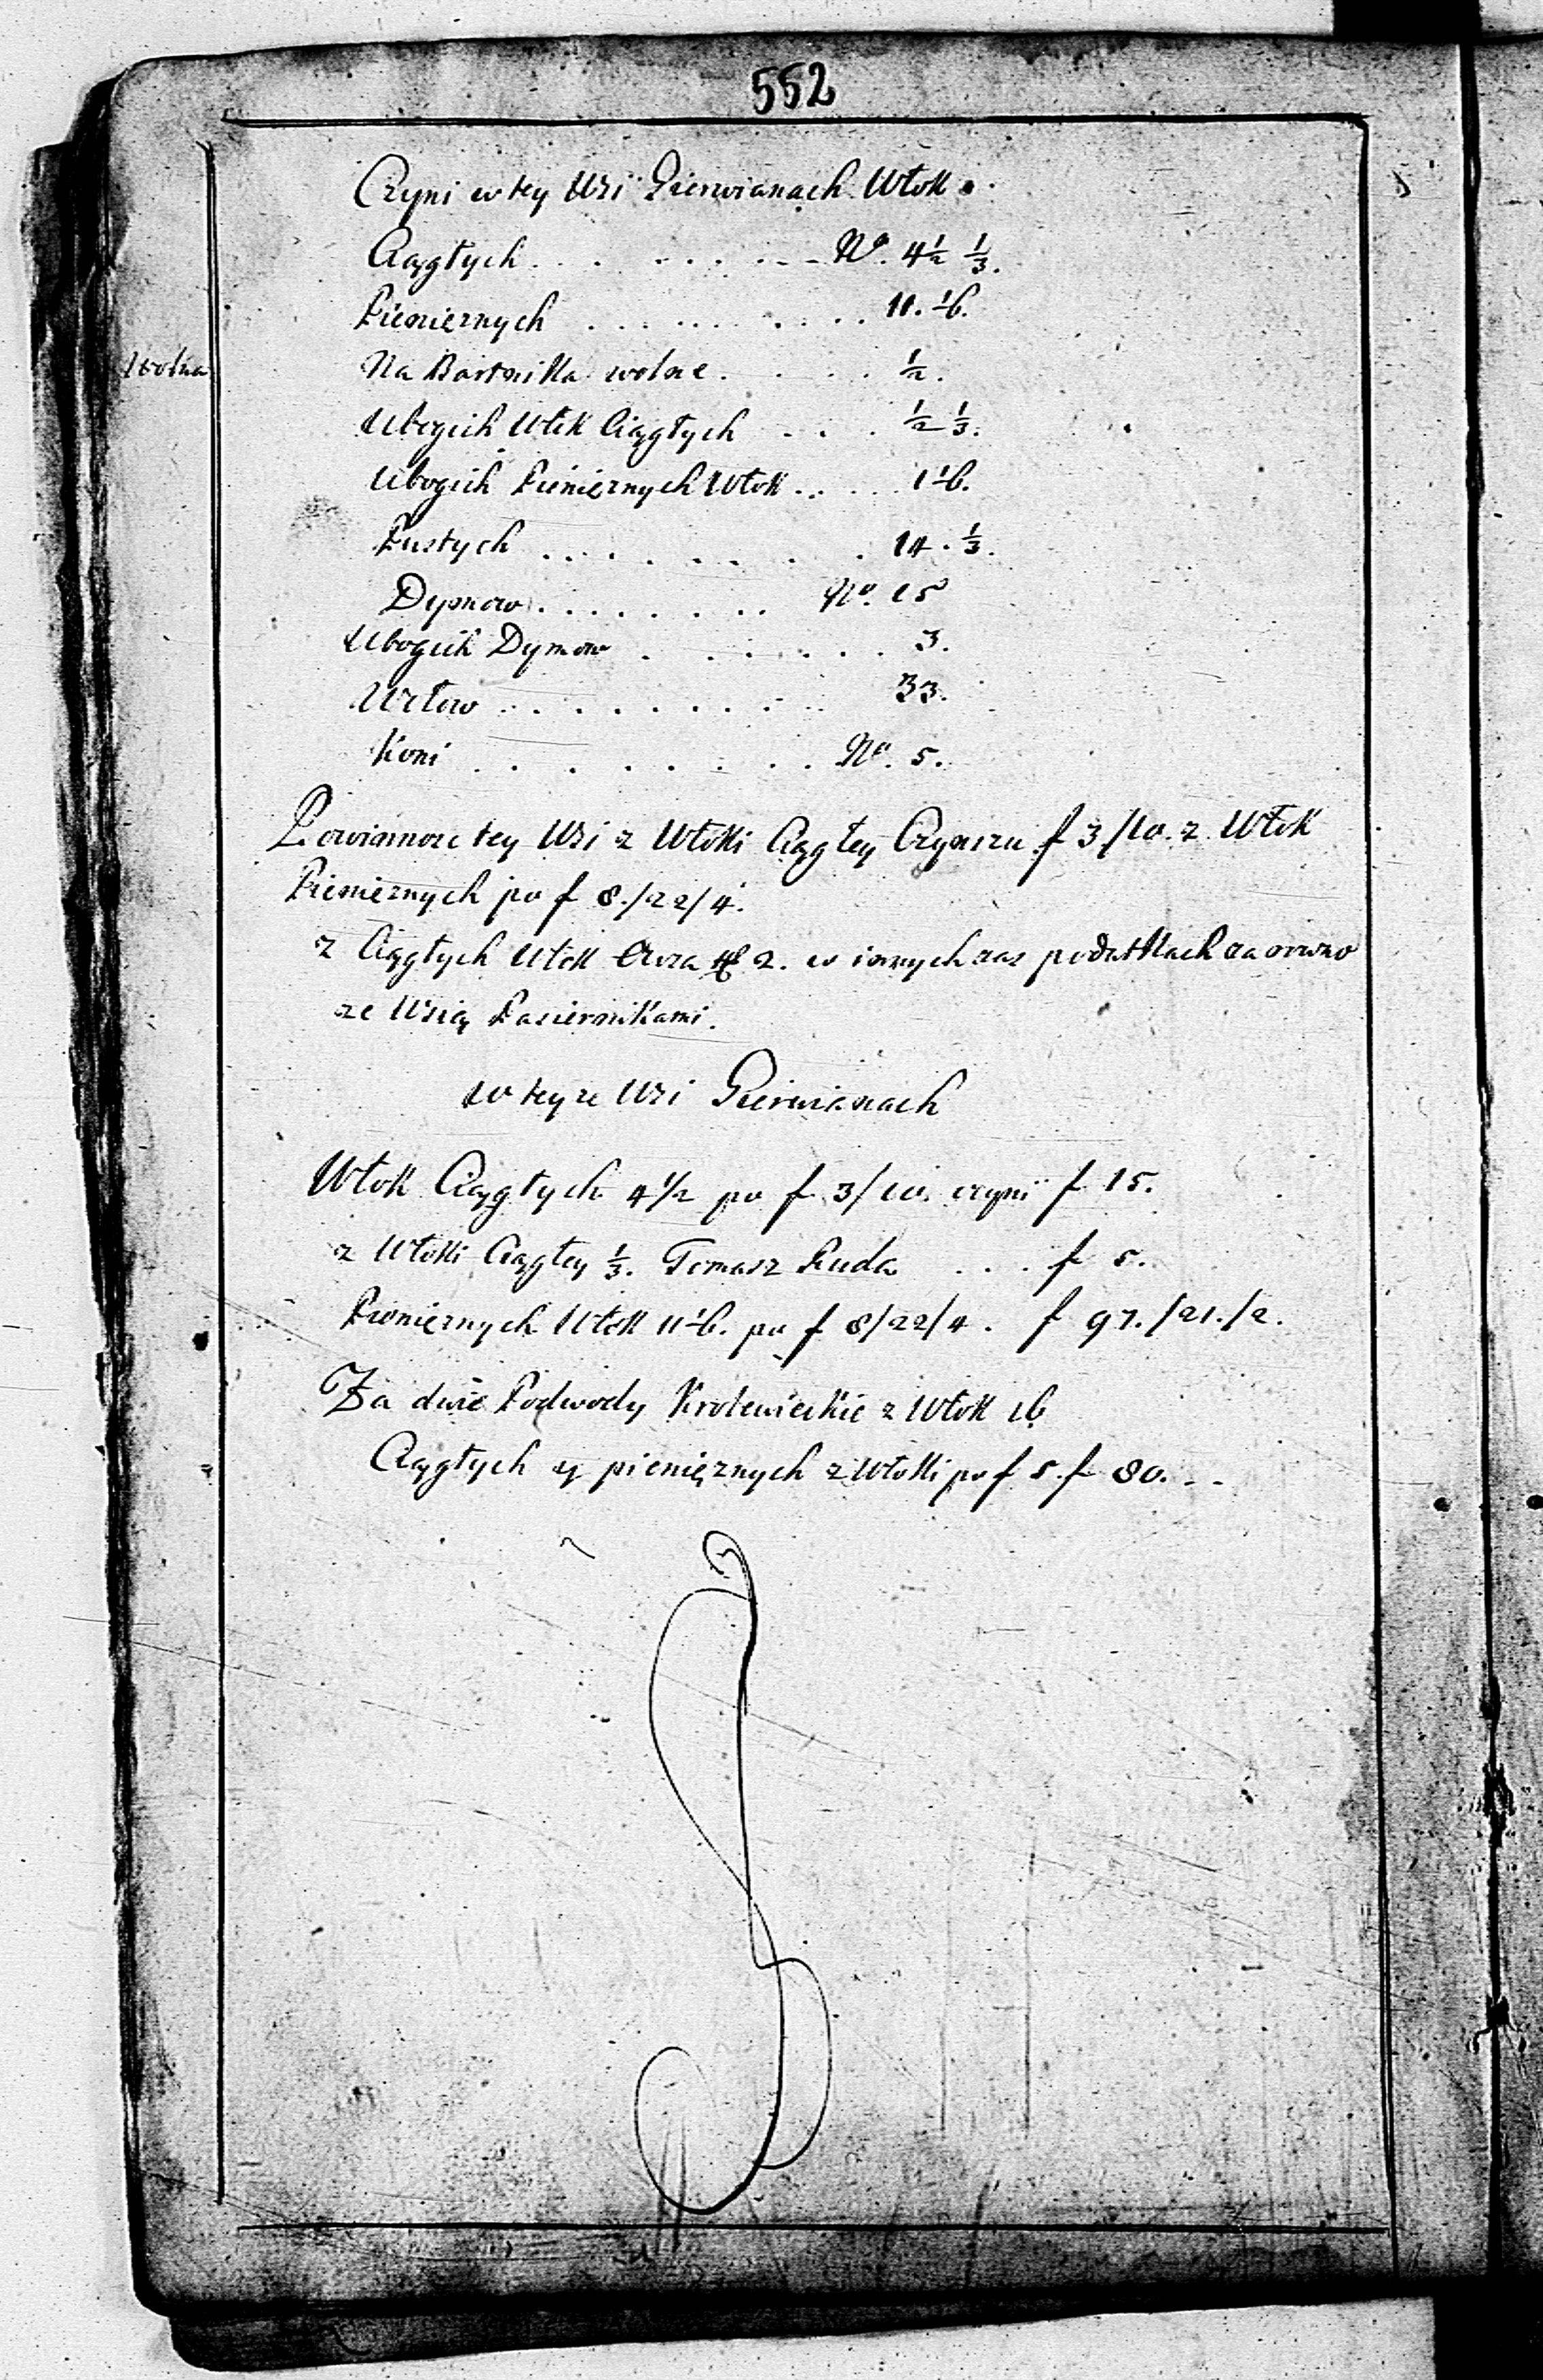 552
Czyni w tey Wsi Gierwianach Włok
Ciągłych . . . . . . . . No. 4 1/2 1/3.
Pieniężnych . . . . . . . . . 11. 1/6.
Wolna
Na Bartnika wolne . . . . 1/2.
Ubogich Włok Ciągłych . . . 1/2 1/3.
Ubogich Pieniężnych Włok . . . . . 1 1/6.
Pustych . . . . . . . . 14. 1/3.
Dymow . . . . . . . . No. 15
Ubogich Dymow . . . . . . 3.
Wołow . . . . . . . . . 33.
Koni . . . . . . . . No. 5.
Powinnosc tey Wsi z Włoki Ciągłey Czynszu f 3/10. z Włok
Pieniężnych po f 8./22/4.
z Ciągłych Włok Owsa 2. w innych zas podatkach za orowno
ze Wsią
w teyze Wsi Gierwianach
Włok Ciągłych 4 1/2 po f 3/10. czyni f 15.
z Włoki Ciągłey 1/3. Tomasz Ruda . . . f 5.
Pieniężnych Włok 11 1/6. po f 8/22/4. f 97./21./2.
Za dwie Podwody Krolewieckie z Włok 16
Ciągłych y pieniężnych z Włoki po f 5. f 80. - -